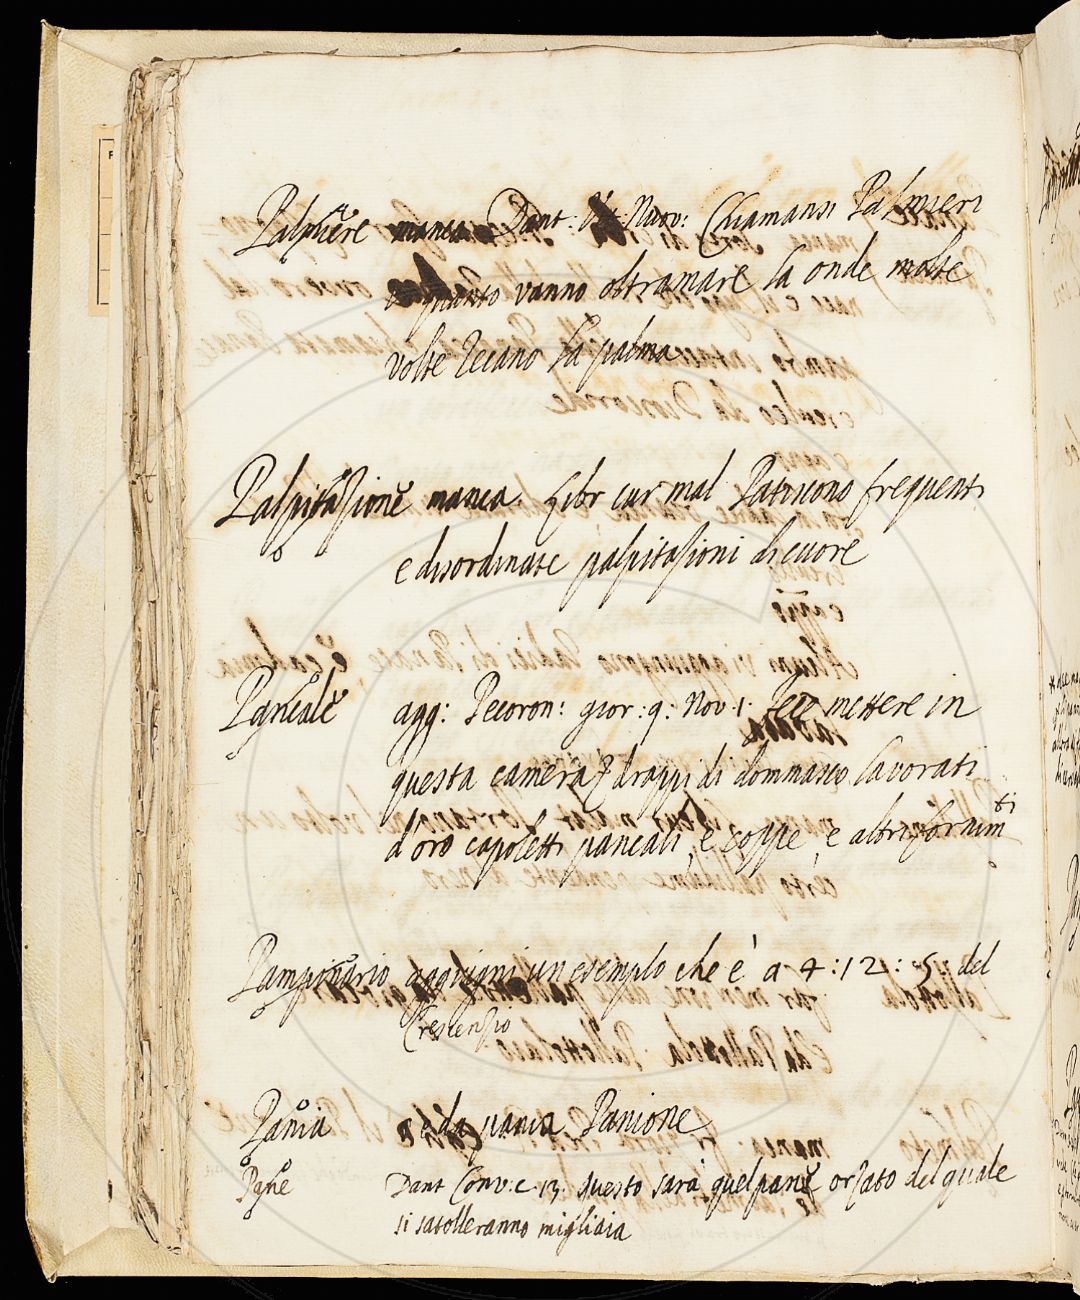 Palmiere manca Dant. Vit. Nuov: Chiamansi Palmieri
quanto vanno oltramare la onde molte
volte recano la palma
Palpitazione manca. Libr cur mal Patiscono frequenti
e disordinate palpitazioni di cuore
Pancale agg: Pecoron: gior: 9: Nov 1. fece mettere in
questa camera drappi di dommasco lavorati
d'oro capoletti pancali, e coppe, e altri fornim.ti
Pampinario aggiugni un esemplo che è a 4:12:5 del
Crescenzio
Pania e da pania Panione
Pane Dant Conv: c. 13. questo sarà quel pane orzato del quale
si satolleranno migliaia